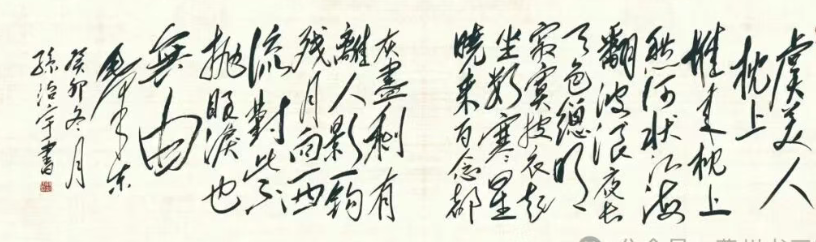 虞美人
枕上
堆来枕上
愁何状江海
翻波浪夜长
天色總难明
寂寞披衣起
坐数寒星
晓来百念都
灰盡剩有
離人影一钩
残月向西
流對此不
抛眼淚也
無由
毛泽东
癸卯冬月
孫治宇書